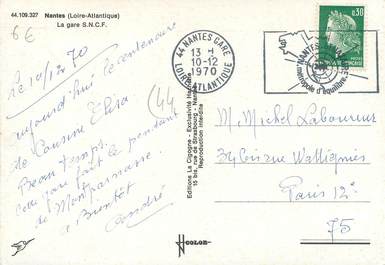 44.109.327 Nantes (Loire-Atlantique)
La gare S.N.C.F.
6€
Le 10/12 70
aujourd'hui
de Cousine Elisa
Beau temps.
Cette gare fait le pendant
de Montparnasse
à Bientôt
André
(44)
Editions La Cigogne - Exclusivité
15 bis, rue de Strasbourg - Nantes
Reproduction interdite
COLOR
44 NANTES GARE
13 H
10-12
1970
LOIRE ATLANTIQUE
NANTES
métropole d'équilibre
0,30
M. Michel Laboureur
34 bis rue Wattignies
Paris 12e
75